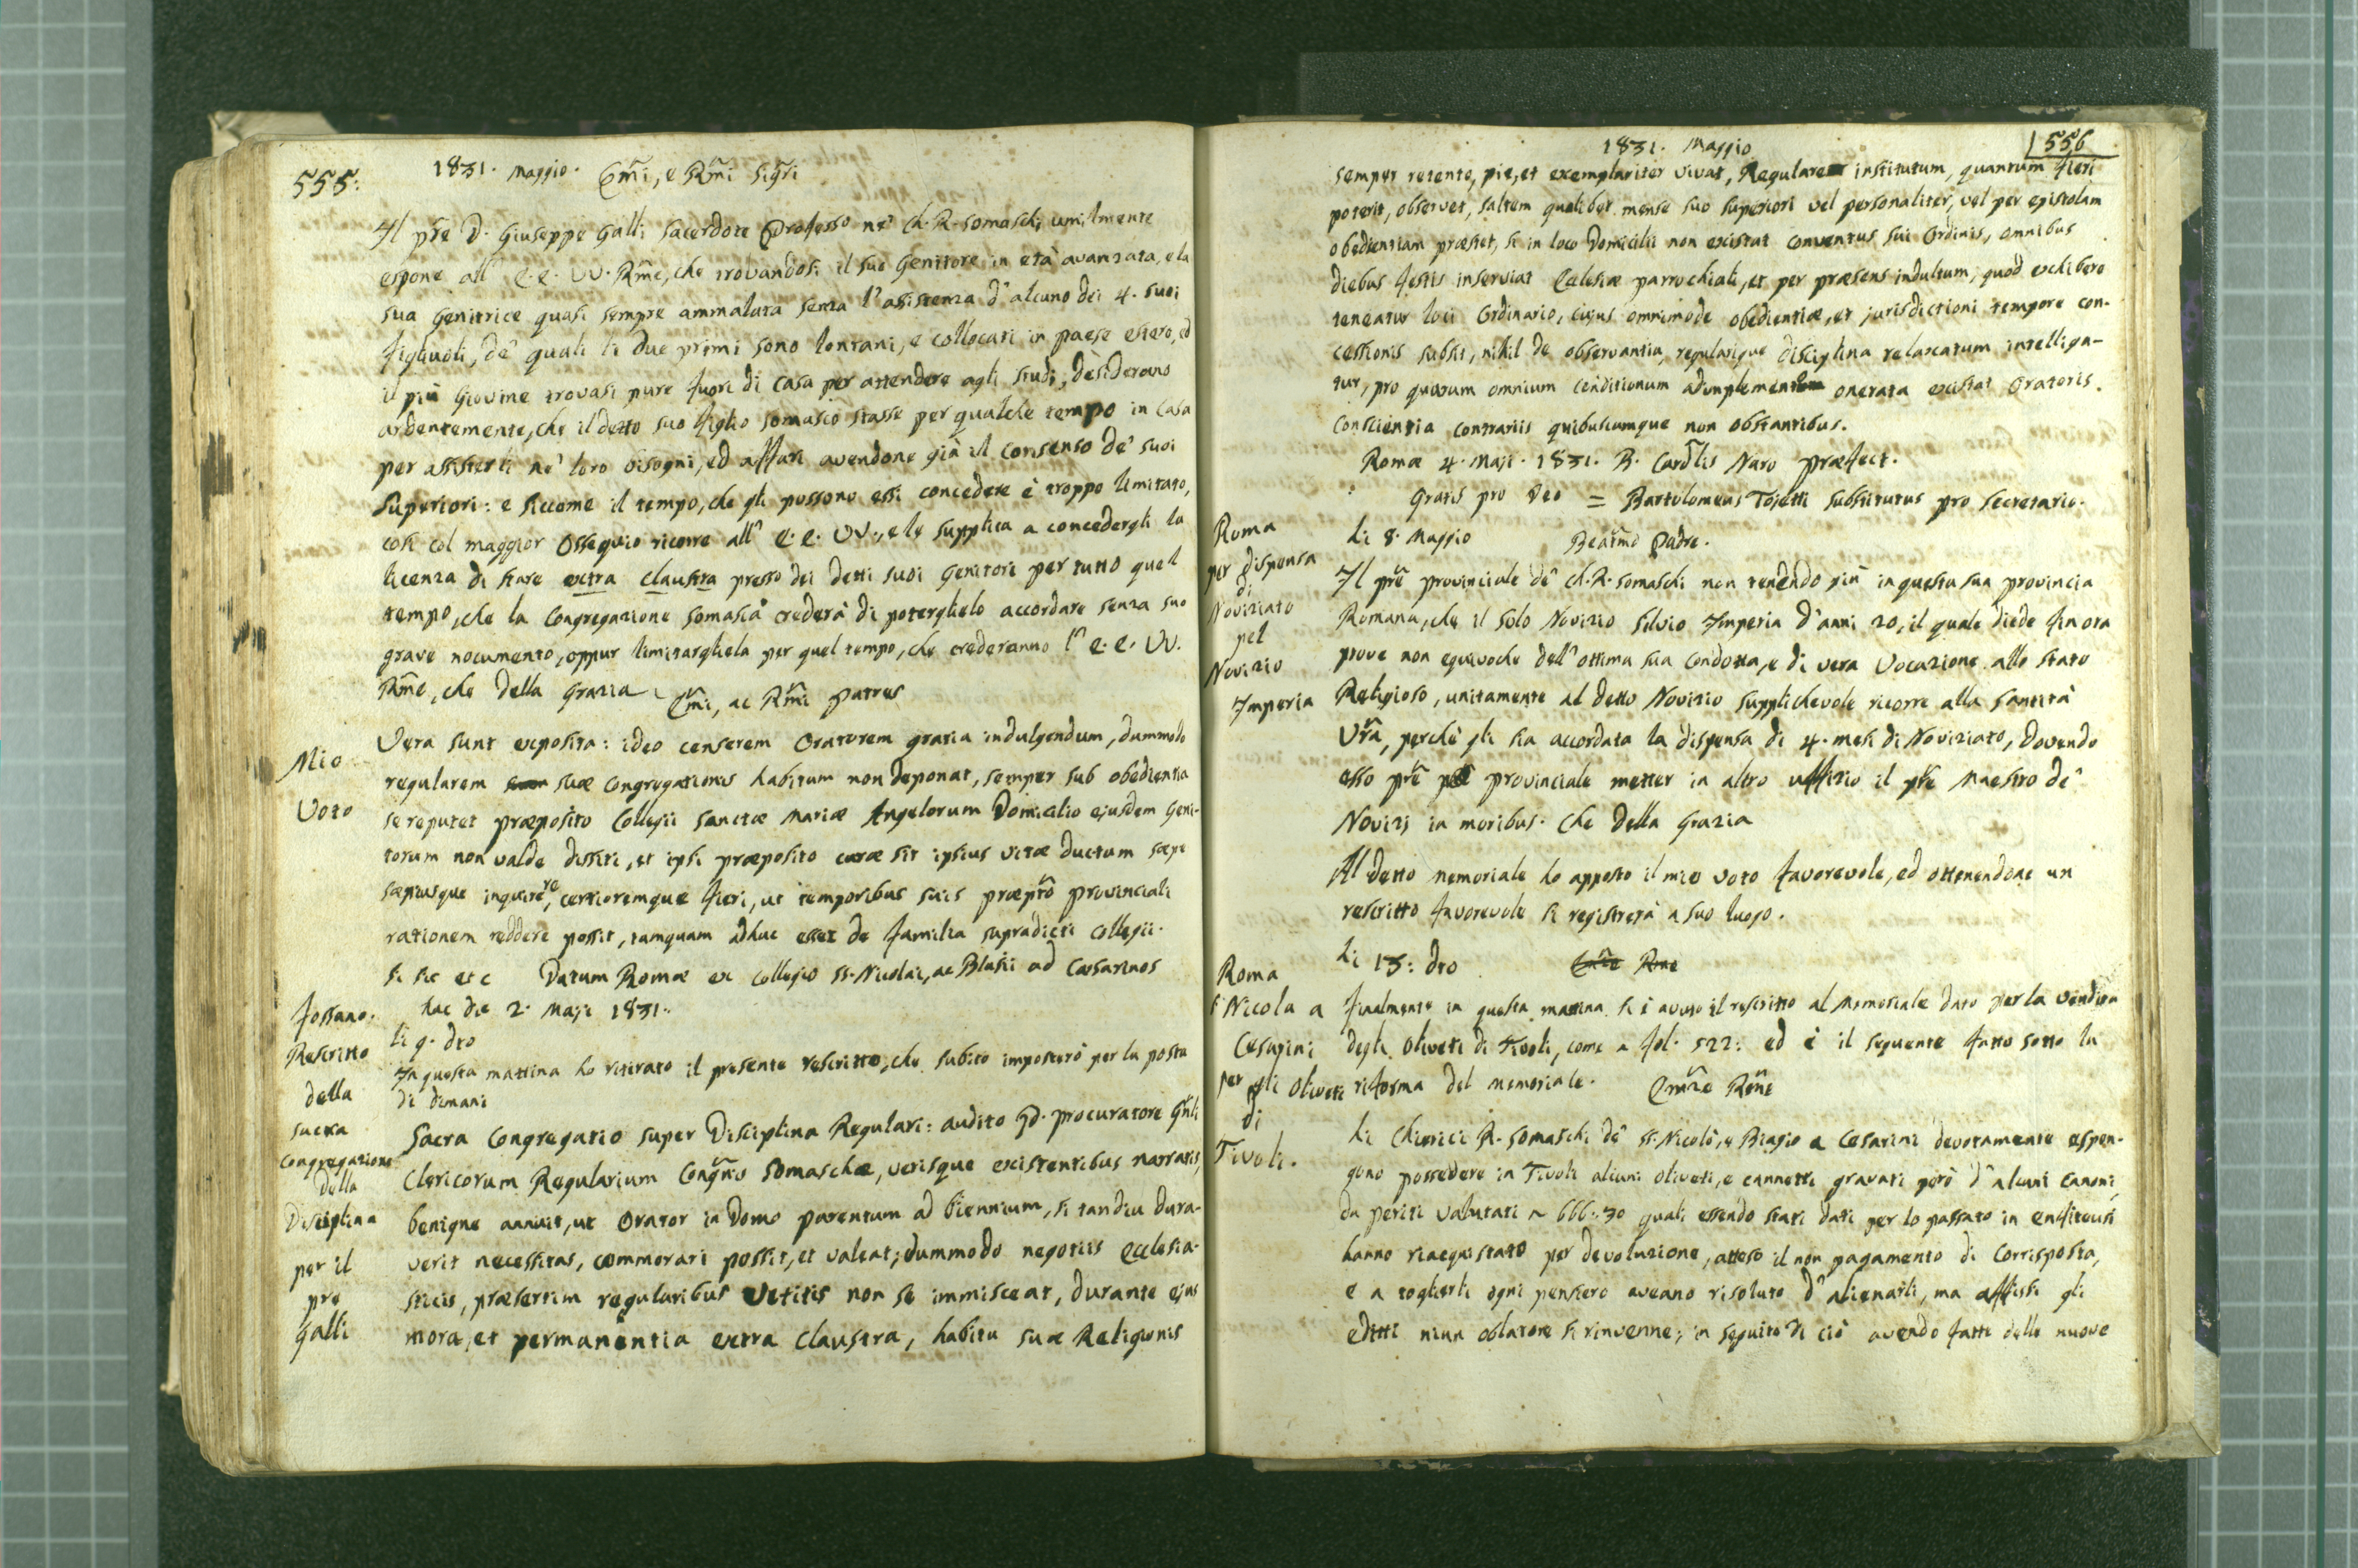 555.
1831. Maggio. Em̃i, e Rm̃i Sig̃ri
Il pr̃e D. Giuseppe Galli Sacerdote Professo ne' Ch. R. Somaschi umilmente
espone all' E. E. VV. Rm̃e, che trovandosi il suo Genitore in età avanzata, e la
sua Genitrice quasi sempre ammalata senza l'assistenza d'alcuno dei 4. suoi
figliuoli, de' quali li due primi sono lontani, e collocati in paese estero, ed
il più Giovine trovasi pure fuori di casa per attendere agli studi, desiderano
ardentemente, che il detto suo figlio Somasco stasse per qualche tempo in Casa
per assisterli ne' loro bisogni, ed affari avendone già il consenso de' suoi
Superiori: e siccome il tempo, che gli possono essi concedere è troppo limitato,
così col maggior Ossequio ricorre all' E. E. VV., e le supplica a concedergli la
licenza di stare extra claustra presso dei detti suoi Genitori per tutto quel
tempo, che la Congregazione Somasca crederà di poterglielo accordare senza suo
grave nocumento, oppur limitargliela per quel tempo, che crederanno l' E. E. VV.
Rm̃e, che della Grazia
Em̃i, ac Rm̃i Patres
Mio
Voto
Vera sunt exposita: ideo censerem Oratorem gratia indulgendum, dummodo
regularem suæ Congregationis habitum non deponat, semper sub obedientia
se reputet præposito Collegii Sanctæ Mariæ Angelorum Domicilio ejusdem Geni-
torum non valde dissiti, et ipsi præposito curæ sit ipsius vitæ ductum sæpe
sæpiusque inquirere, certioremque fieri, ut temporibus suis præpto provinciali
rationem reddere possit, tamquam adhuc esset de familia supradicti Collegii.
Si sic etc Datum Romæ ex Collegio SS. Nicolai, ac Blasii ad Cæsarinos
hac die 2. Maji 1831.
Fossano.
Rescritto
della
sacra
Congregazione
della
Disciplina
per il
pre
Galli
li 9. dto
In questa mattina ho ritirato il presente rescritto, che subito imposterò per la posta
di dimani
Sacra Congregatio super Disciplina Regulari: audito Pd. procuratore Gñli
Clericorum Regularium Congñis Somaschæ, verisque existentibus narratis,
benigne annuit, ut Orator in Domo parentum ad biennium, si tandiu dura-
verit necessitas, commorari possit, et valeat; dummodo negotiis Ecclesia-
sticis, præsertim regularibus vetitis non se immisceat, durante ejus
mora, et permanentia extra claustra, habitu suæ Religionis
556
1831. Maggio
semper retento, pie, et exemplariter vivat, Regulare institutum, quantum fieri
poterit, observet, saltem quolibet mense suo superiori vel personaliter, vel per epistolam
obedientiam præstet, si in loco Domicilii non existat conventus sui Ordinis, omnibus
diebus festis inserviat Ecclesiæ parrochiali, et per præsens indultum, quod exhibere
teneatur loci Ordinario, cujus omnimode obedientiæ, et jurisdictioni tempore con-
cessionis subsit, nihil de observantia, regularique disciplina relaxatum intelliga-
tur, pro quorum omnium conditionum adimplemento onerata existat Oratoris
conscientia contrariis quibuscumque non obstantibus.
Romæ 4. Maji. 1831. B. Cardlis Naro Præfect.
Gratis pro Deo = Bartolomeus Tojetti substitutus pro secretario.
Roma
per dispensa
di
Noviziato
pel
Novizio
Imperia
li 8. Maggio Beatm̃o Padre.
Il pr̃e provinciale de' Ch. R. Somaschi non tenendo più in questa sua provincia
Romana, che il solo Novizio Silvio Imperia d'anni 20, il quale diede finora
prove non equivoche dell'ottima sua condotta, e di vera Vocazione allo stato
Religioso, unitamente al detto Novizio supplichevole ricorre alla Santità
Vr̃a, perchè gli sia accordata la dispensa di 4. mesi di Noviziato, dovendo
esso pr̃e provinciale metter in altro uffizio il pr̃e Maestro de'
Novizj in moribus. Che della Grazia
Al detto memoriale ho apposto il mio voto favorevole, ed ottenendone un
rescritto favorevole si registrerà a suo luogo.
Roma
S Nicola a
Cesarini
per gli Oliveti
di
Tivoli.
li 13: dto Em̃ze Rm̃e
Finalmente in questa mattina si è avuto il rescritto al Memoriale dato per la vendita
degli Oliveti di Tivoli, come a fol. 522: ed è il seguente fatto sotto la
riforma del memoriale. Em̃ze Rm̃e
Li Chierici R. Somaschi de' SS. Nicolò, e Biagio a Cesarini devotamente espon-
gono possedere in Tivoli alcuni oliveti, e cannetti gravati però d'alcuni canoni,
da periti valutati 666:30 quali essendo stati dati per lo passato in enfiteusi
hanno riacquistato per devoluzione, atteso il non pagamento di Corrisposta,
e a toglierli ogni pensiero aveano risoluto d'alienarli, ma affissi gli
editti niun oblatore si rinvenne; in seguito di ciò avendo fatti delle nuove